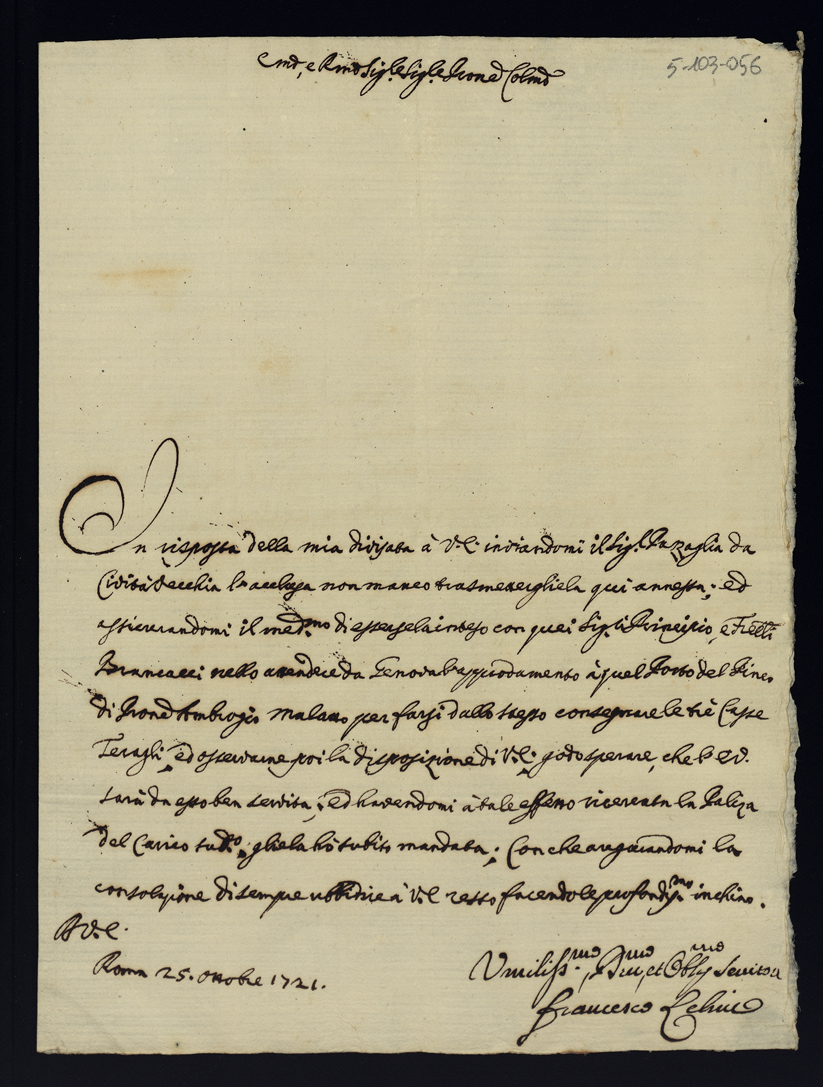 5-103-056
Em.o, e R.mo Sig.re Sig.re Prone Colmo
In risposta della mia divisata à V.E. inviandomi il Sig.r Pazzaglia da
Civitàvecchia l'acclusa non manco trasmetergliela qui annessa; ed
assicurandomi il med.mo di essersela inteso con quei Sig.ri Principio, e Fr̃elli
Brancacci nello attendere da Genova l'approdamento à quel Porto del Pinco
di Prone Ambrogio per farsi dallo stesso consegnare le trè Casse
Teragli, ed osservarne poi la disposizione di V.E., godo sperare, che l'E.V.
sarà da esso ben servita; ed havendomi à tale effetto ricercata la Poliza
del Carico sud.o, gliela hò subito mandata; Con che augurandomi la
consolazione di sempre ubbidire à V.E. resto facendole profondis.mo inchino.
D V.E.
Roma 25. ottobre 1721.
Umiliss.mo, Di.mo, et Obl.mo Servitore
Francesco